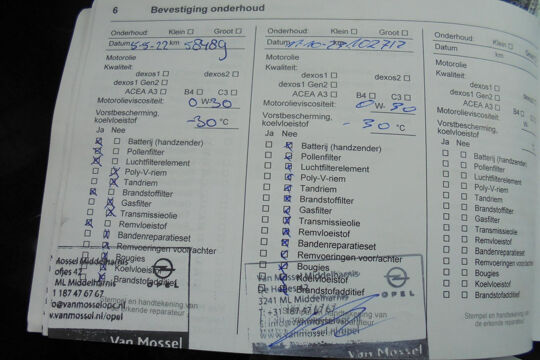 6 Bevestiging onderhoud
Onderhoud: Klein Groot
Datum 5-5-22 km 58489
Motorolie
Kwaliteit:
dexos1 dexos2
dexos1 Gen2
ACEA A3 B4 C3
Motorolieviscositeit: 0 W 30
Vorstbescherming,
koelvloeistof -30 °C
Ja Nee
Batterij (handzender)
Pollenfilter
Luchtfilterelement
Poly-V-riem
Tandriem
Brandstoffilter
Gasfilter
Transmissieolie
Remvloeistof
Bandenreparatieset
Remvoeringen voor/achter
Bougies
Koelvloeistof
Brandstofadditief
Mossel Middelharnis
ML Middelharnis
187 47 67 67
OPEL
Van Mossel
Onderhoud: Klein Groot
Datum 102712
Motorolie
Kwaliteit:
dexos1 dexos2
dexos1 Gen2
ACEA A3 B4 C3
Motorolieviscositeit: 0 W- 30
Vorstbescherming,
koelvloeistof -30 °C
Ja Nee
Batterij (handzender)
Pollenfilter
Luchtfilterelement
Poly-V-riem
Tandriem
Brandstoffilter
Gasfilter
Transmissieolie
Remvloeistof
Bandenreparatieset
Remvoeringen voor/achter
Bougies
Koelvloeistof
Brandstofadditief
Van Mossel Middelharnis
3241 ML Middelharnis
OPEL
Van Mossel
Onderhoud: Klein
Datum km
Motorolie
Kwaliteit:
dexos1
dexos1 Gen2
ACEA A3
Motorolieviscositeit:
Vorstbescherming,
koelvloeistof
Ja Nee
Batterij (handzender)
Pollenfilter
Luchtfilterelement
Poly-V-riem
Tandriem
Brandstoffilter
Gasfilter
Transmissieolie
Remvloeistof
Bandenreparatieset
Remvoeringen voor/
Bougies
Koelvloeistof
Brandstofadditief
Stempel en handtekening
de erkende reparateur